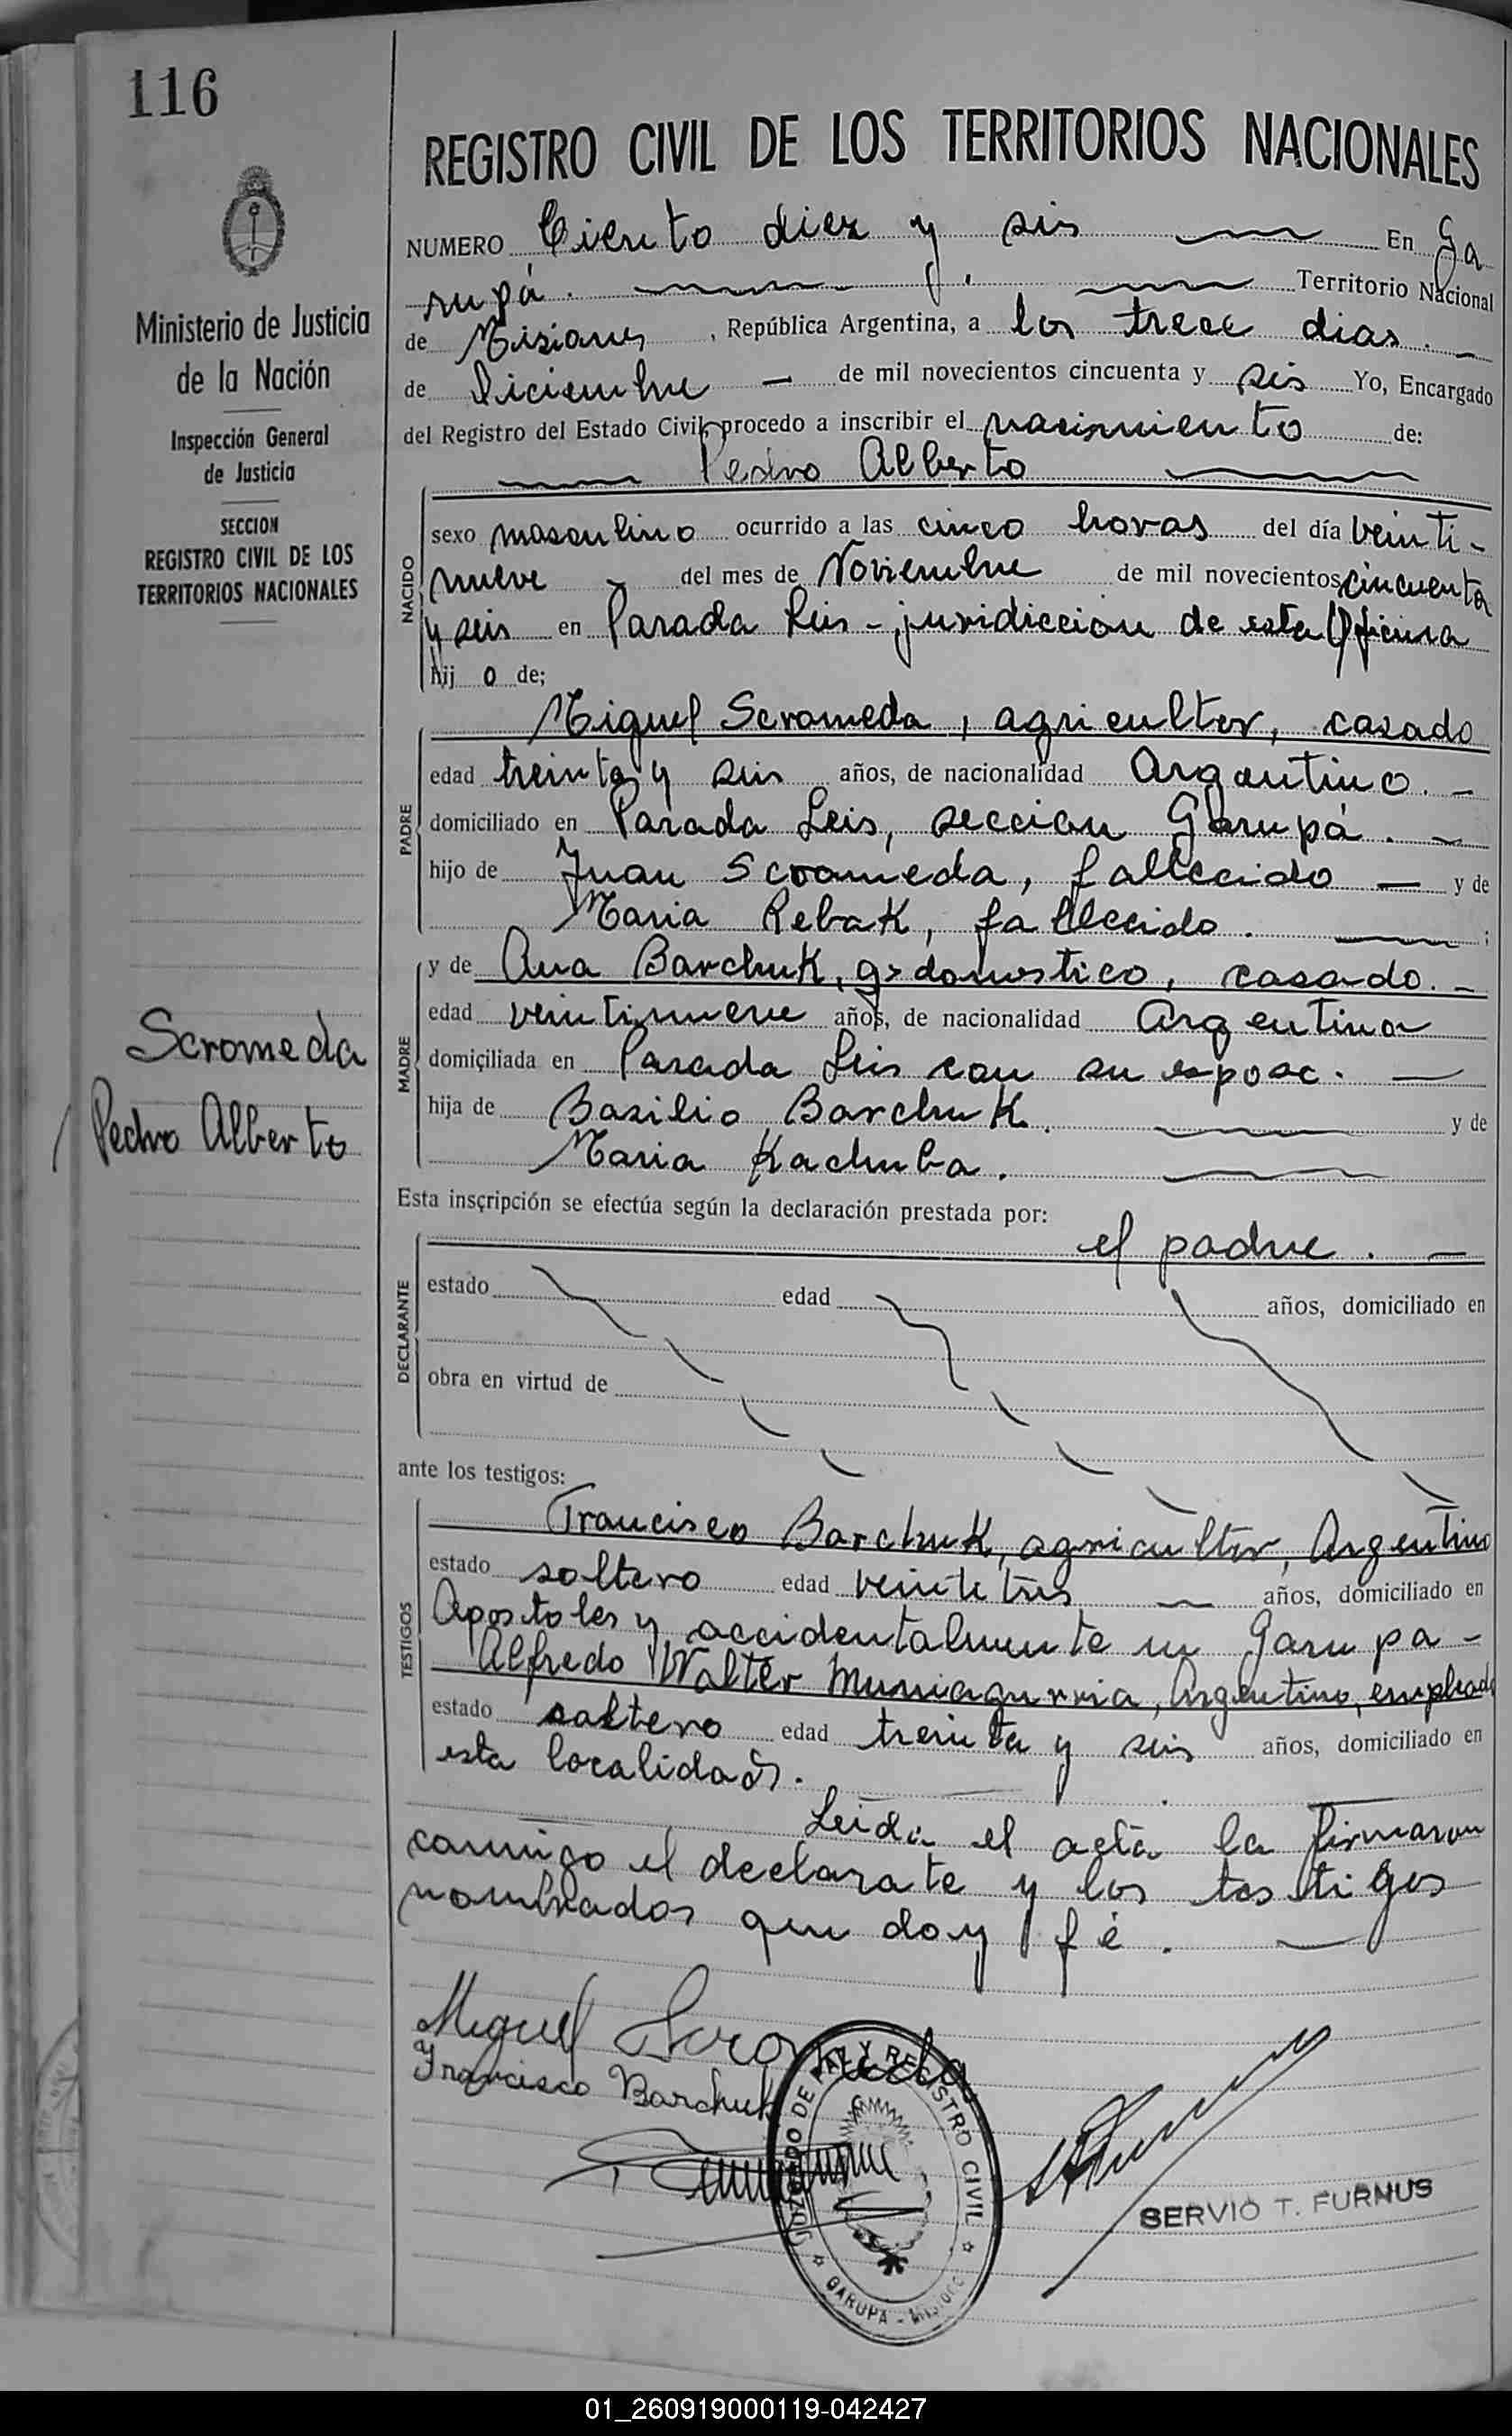 116
REGISTRO CIVIL DE LOS TERRITORIOS NACIONALES
Ministerio de Justicia
de la Nación
Inspección General
de Justicia
SECCION
REGISTRO CIVIL DE LOS
TERRITORIOS NACIONALES
Scromeda
Pedro Alberto
NUMERO Ciento diez y sis En Ga
rupá. Territorio Nacional
de Misiones, República Argentina, a los trece dias.
de Diciembre de mil novecientos cincuenta y seis Yo, Encargado
del Registro del Estado Civil, procedo a inscribir el nacimiento de:
Pedro Alberto
NACIDO
sexo masculino ocurrido a las cinco horas del día veinti-
nueve del mes de Noviembre de mil novecientos cincuenta
y seis en Parada Leis - juridiccion de esta Oficina
hij o de;
PADRE
Miguel Scromeda, agricultor, casado
edad treinta y seis años, de nacionalidad Argentino. -
domiciliado en Parada Leis, seccion Garupá. -
hijo de Juan Scromeda, fallecido — y de
Maria Rebak, fallecida. ;
MADRE
y de Ana Barchuk, q> domestico, casada. -
edad veintinueve años, de nacionalidad Argentina
domiciliada en Parada Leis con su esposo. —
hija de Basilio Barchuk. y de
Maria Kachuba.
Esta inscripción se efectúa según la declaración prestada por:
el padre. —
DECLARANTE
estado edad años, domiciliado en
obra en virtud de
ante los testigos:
TESTIGOS
Francisco Barchuk, agricultor, Argentino
estado soltero edad veinte tres años, domiciliado en
Apostoles y accidentalmente en Garupa -
Alfredo Walter Muniagurria, Argentino, empleado
estado soltero edad treinta y seis años, domiciliado en
esta localidad.
Leida el acta la firmaron
conmigo el declarate y los testigos
nombrados que doy fé.
Miguel Scromeda
Francisco Barchuk
JUZGADO DE PAZ Y REGISTRO CIVIL
GARUPA - MISIONES
SERVIO T. FURNUS
01_260919000119-042427